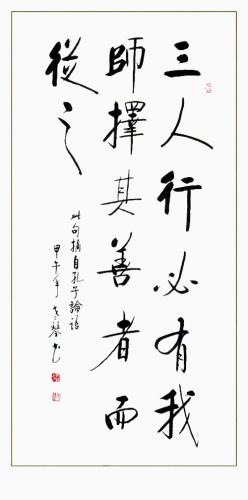 三人行必有我
師擇其善者而
從之
此句摘自孔子論語
甲午年